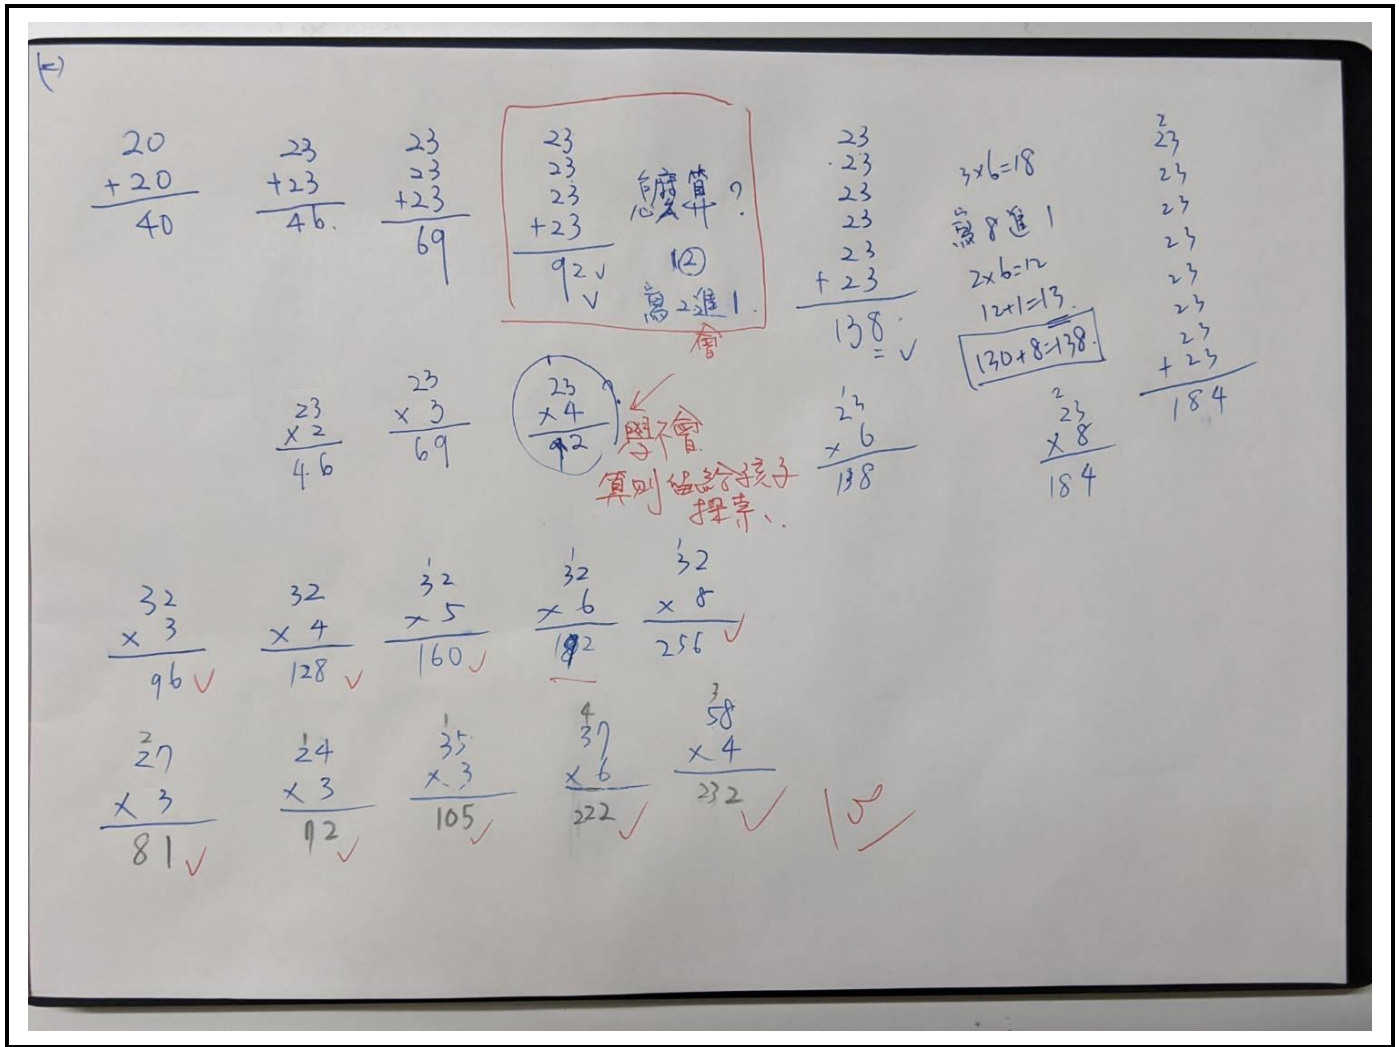 (一)
20
+20
40
23
+23
46.
23
23
+23
69
23
23
23
+23
92
怎麼算?
12
寫2進1.
會
23
23
23
23
23
+23
138
3×6=18
寫8進1
2×6=12
12+1=13.
130+8=138.
2
23
23
23
23
23
23
23
+23
184
23
×2
46
23
×3
69
1
23
×4
92
?
學不會
算則留給孩子
探索、
1
23
×6
138
2
23
×8
184
32
×3
96
32
×4
128
1
32
×5
160
1
32
×6
192
1
32
×8
256
2
27
×3
81
1
24
×3
72
1
35
×3
105
4
37
×6
222
3
58
×4
232